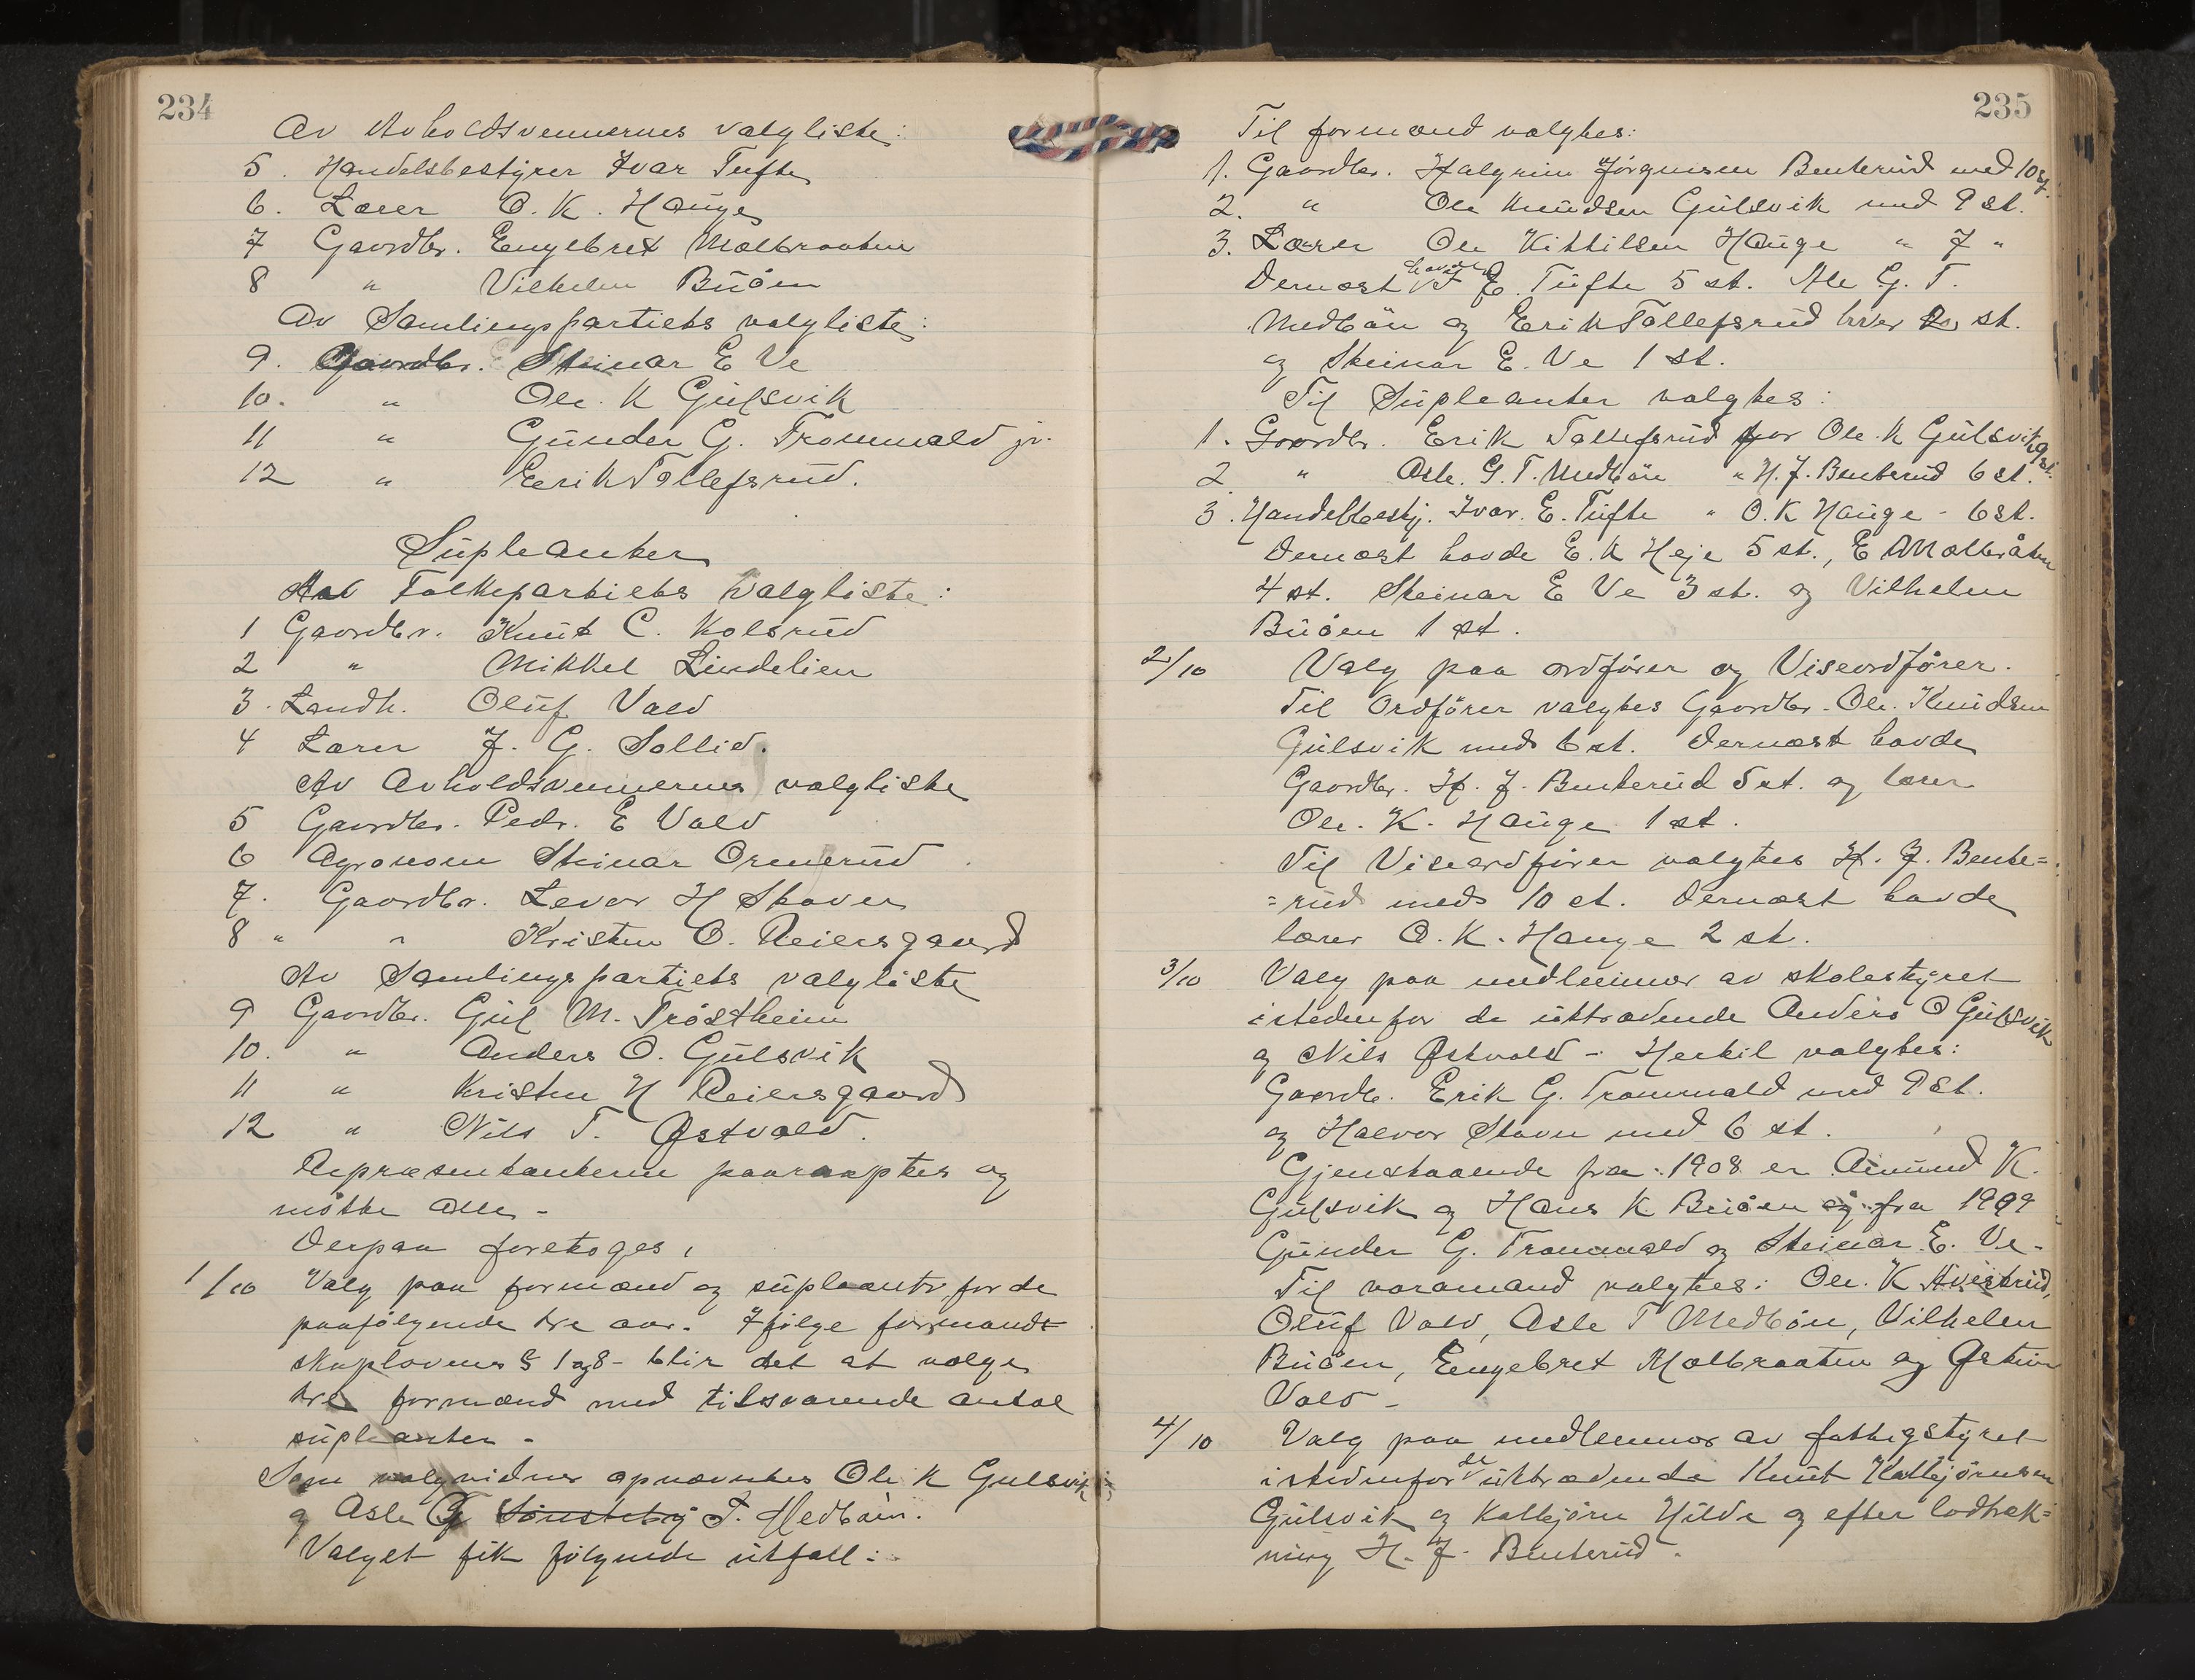 234
Av Avholdsvennernes valgliste:
5. Handelsbestyrer Ivar Tufte
6. Lærer O. K. Hauge
7 Gaardbr. Engebret Mælbraaten
8 " Vilhelm Buöen
Av Samlingspartiets valgliste:
9. Gaardbr. Steinar E Ve
10. " Ole K Gulsvik
11 " Gunder G. Trommald jr.
12 " Erik Tollefsrud.
Supleanter
Av Folkepartiets valgliste:
1 Gaardbr. Knut C. Kolsrud
2 " Mikkel Lindelien
3. Landh. Oluf Vald
4 Lærer J. G. Sollid.
Av Avholdsvennernes valgliste
5 Gaardbr. Pedr. E Vald
6 Agronom Steinar Ormerud
7. Gaardbr. Levor H Skaven
8 " " Kristen O. Reiersgaard
Av Samlingspartiets valgliste
9 Gaardbr. Gul M. Tröstheim
10. " Anders O. Gulsvik
11 " Kristen H Reiersgaard
12 " Nils T. Østvold.
Repræsentanterne paaroptes og
mötte alle -
Derpaa foretoges,
1/10 Valg paa formænd og supleantr for de
paafölgende tre aar. Ifölge formand-
skapslovens § 1 og 8 - blir det at vælge
tre formænd med tilsvarende antal
supleanter -
Som valgvidner opnævntes Ole K Gulsvik
og Asle G Sönsteby T. Medböen.
Valget fik fölgende utfall:
235
Til formænd valgtes:
1. Gaardbr. Halgrim Jörgensen Benterud med 10 st.
2. " Ole Knudsen Gulsvik med 9 st.
3. Lærer Ole Kittilsen Hauge " 7 "
Dernæst havde I E. Tufte 5 st. Ale G. T.
Medböen og Erik Tollefsrud hver 2 st.
og Steinar E. Ve 1 st.
Til Supleanter valgtes:
1. Gaardbr. Erik Tollefsrud for Ole K Gulsvik 9 st.
2 " Asle. G. T. Medböen " H. J. Benterud 6 st.
3. Handelbestj. Ivar. E. Tufte " O. K Hauge - 6 st.
Dernæst havde E. K Heje 5 st., E Mælbråten
4 st. Steinar E Ve 3 st. og Vilhelm
Buöen 1 st.
2/10 Valg paa ordförer og Viseordförer.
Til Ordförer valgtes Gaardbr. Ole Knudsen
Gulsvik med 6 st. Dernæst havde
Gaardbr. H. J. Benterud 5 st. og lærer
Ole. K. Hauge 1 st.
Til Viseordförer valgtes H. J. Bente=
=rud med 10 st. Dernæst havde
lærer O. K. Hauge 2 st.
3/10 Valg paa medlemmer av skolestyret
istedenfor de uttrædende Anders O Gulsvik
og Nils Østvold - Hertil valgtes:
Gaardbr. Erik G. Trommald med 9 st.
og Halvor Stavn med 6 st.
Gjenstaaende fra 1908 er Amund K.
Gulsvik og Hans K Buöen og fra 1909
Gunder G. Trommald og Steinar E. Ve -
Til varamænd valgtes: Ole. K
Oluf Vald, Asle T Medböen, Vilhelm
Buöen, Engebret Mælbraaten og
Vald -
4/10 Valg paa medlemmer av fattigstyret
istedenfor de uttrædende Knut Kolbjörnsen
Gulsvik og Kolbjörn Hilde og efter lodtræk=
ning H. J. Benterud.